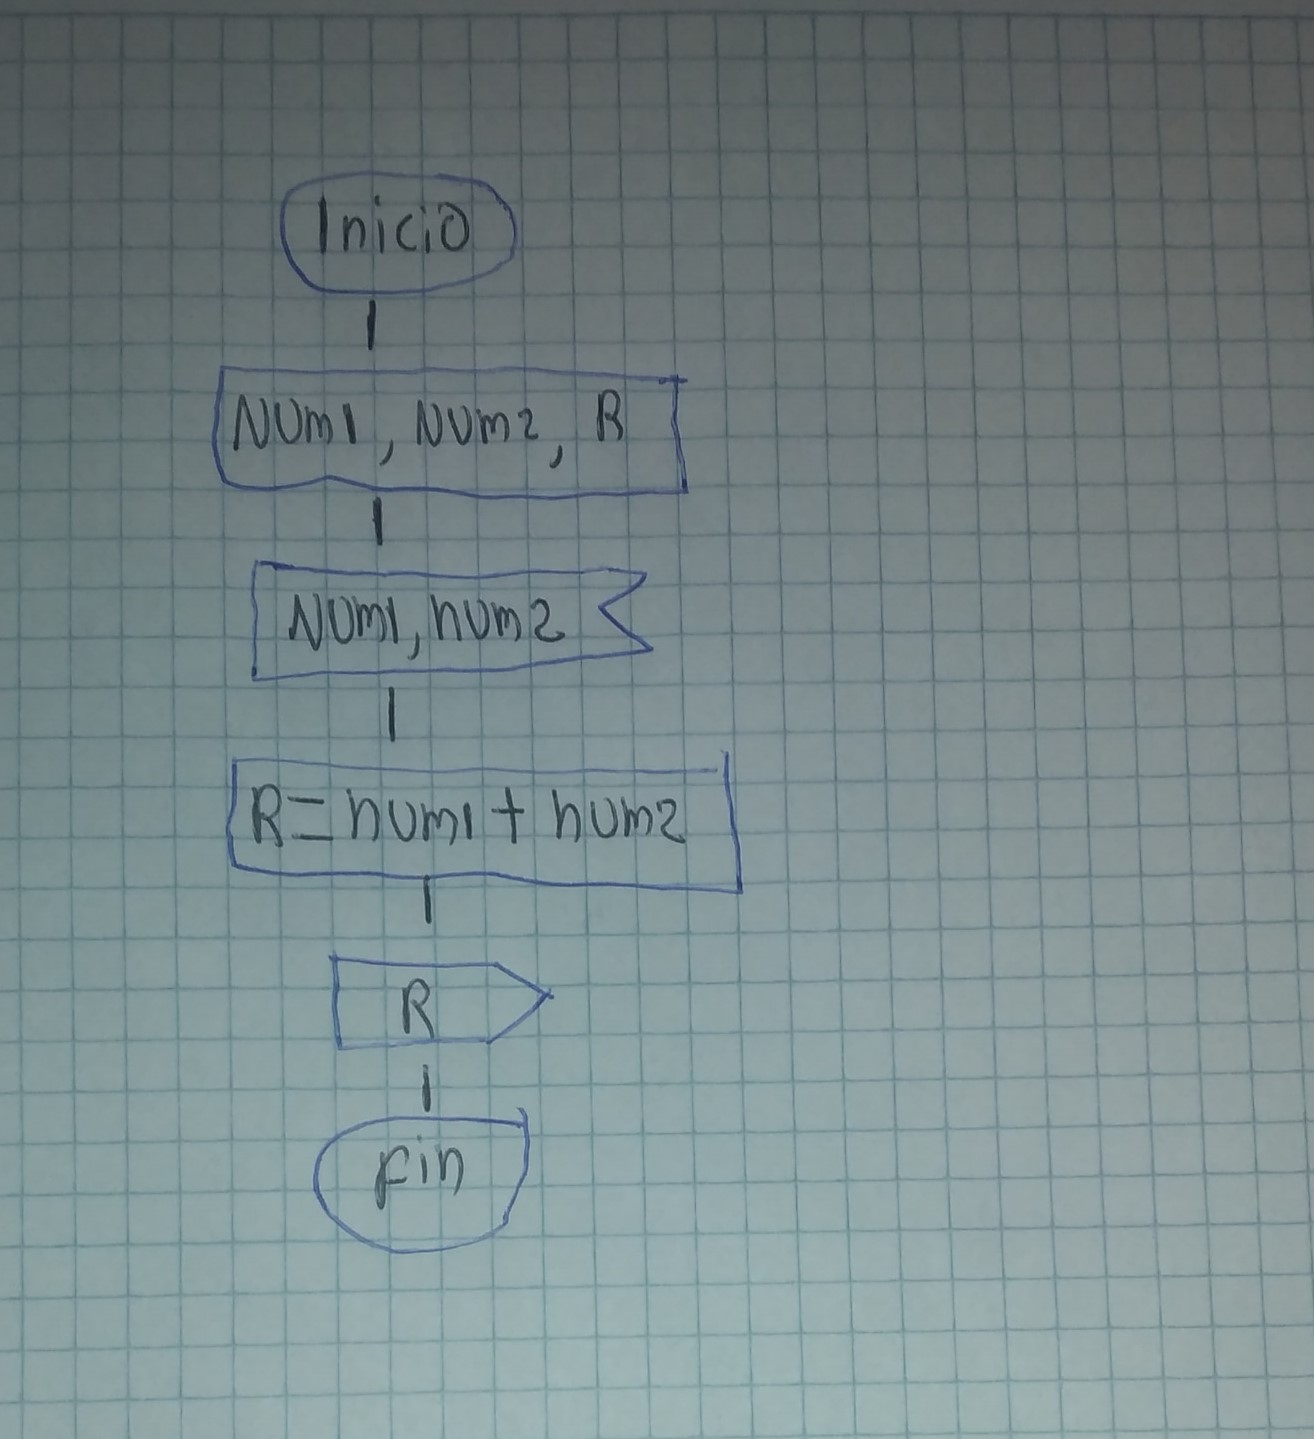 Inicio
Num1, Num2, R
Num1, num2
R=num1+ num2
R
Fin